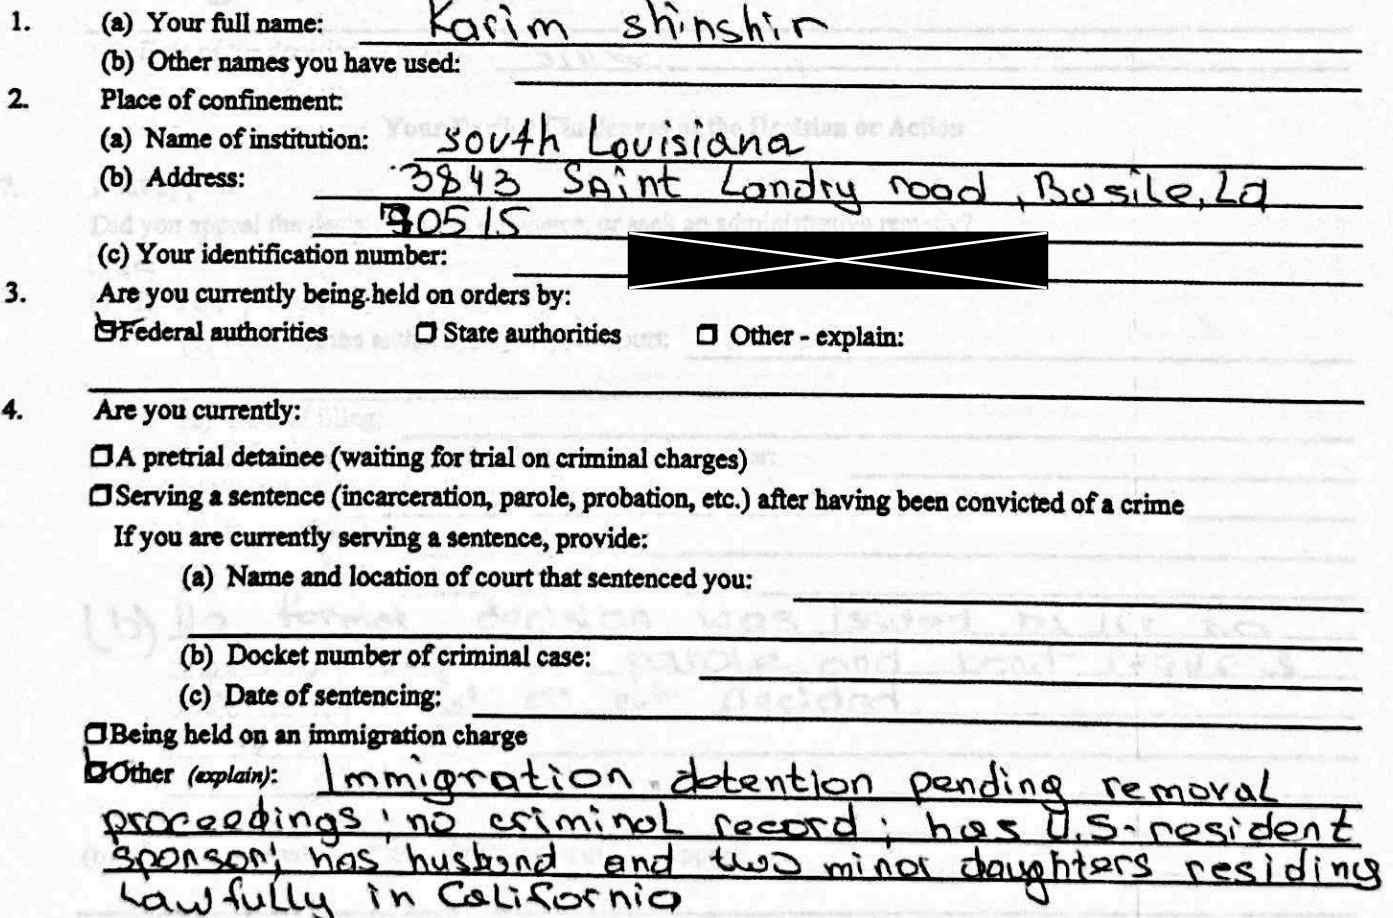 1. (a) Your full name: Karim shinshir
(b) Other names you have used:
2. Place of confinement:
(a) Name of institution: south Louisiana
(b) Address: 3843 SAint Landry road, Basile, La
70515
(c) Your identification number:
3. Are you currently being held on orders by:
Federal authorities State authorities Other - explain:
4. Are you currently:
A pretrial detainee (waiting for trial on criminal charges)
Serving a sentence (incarceration, parole, probation, etc.) after having been convicted of a crime
If you are currently serving a sentence, provide:
(a) Name and location of court that sentenced you:
(b) Docket number of criminal case:
(c) Date of sentencing:
Being held on an immigration charge
Other (explain): Immigration detention pending removal
proceedings; no criminal record; has U.S-resident
sponsor; has husband and two minor daughters residing
Lawfully in California